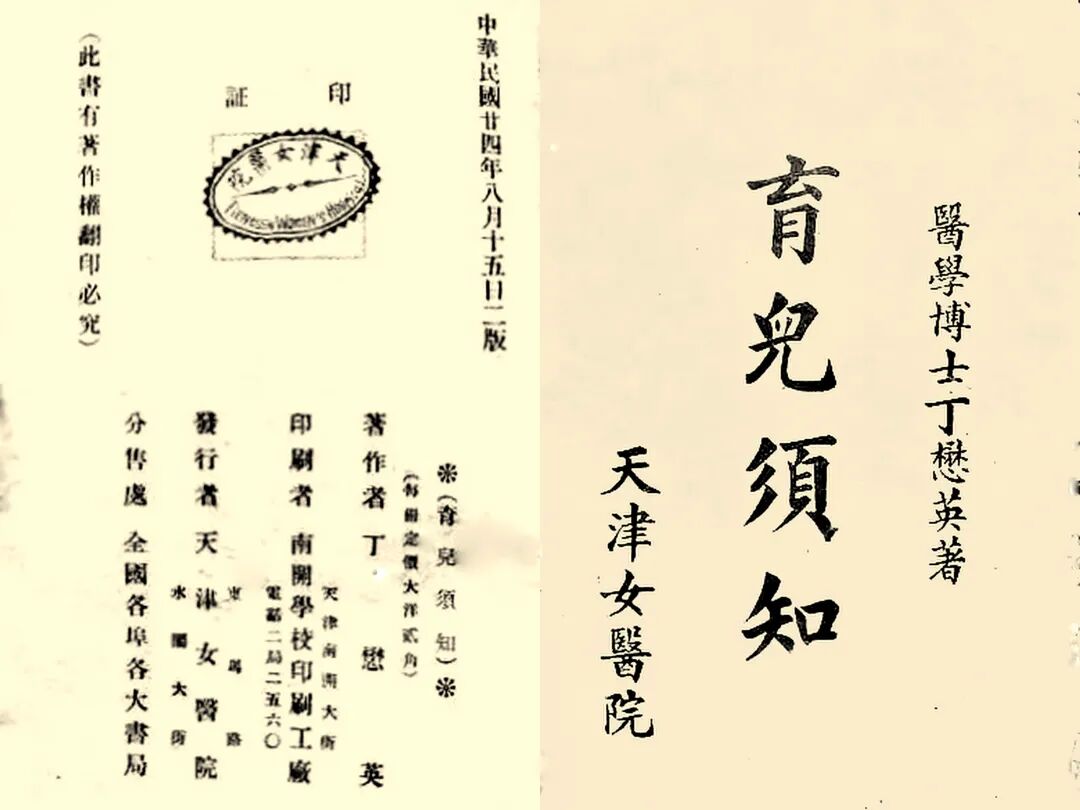 醫學博士丁懋英著
育兒須知
天津女醫院
中華民國廿四年八月十五日二版
印証
天津女醫院
TIENTSIN WOMEN'S HOSPITAL
(此書有著作權翻印必究)
※(育兒須知)※
(每冊定價大洋貳角)
著作者 丁懋英
天津南開大街
印刷者 南開學校印刷工廠
電話二局二五六〇
東馬路
發行者 天津女醫院
水閣大街
分售處 全國各埠各大書局